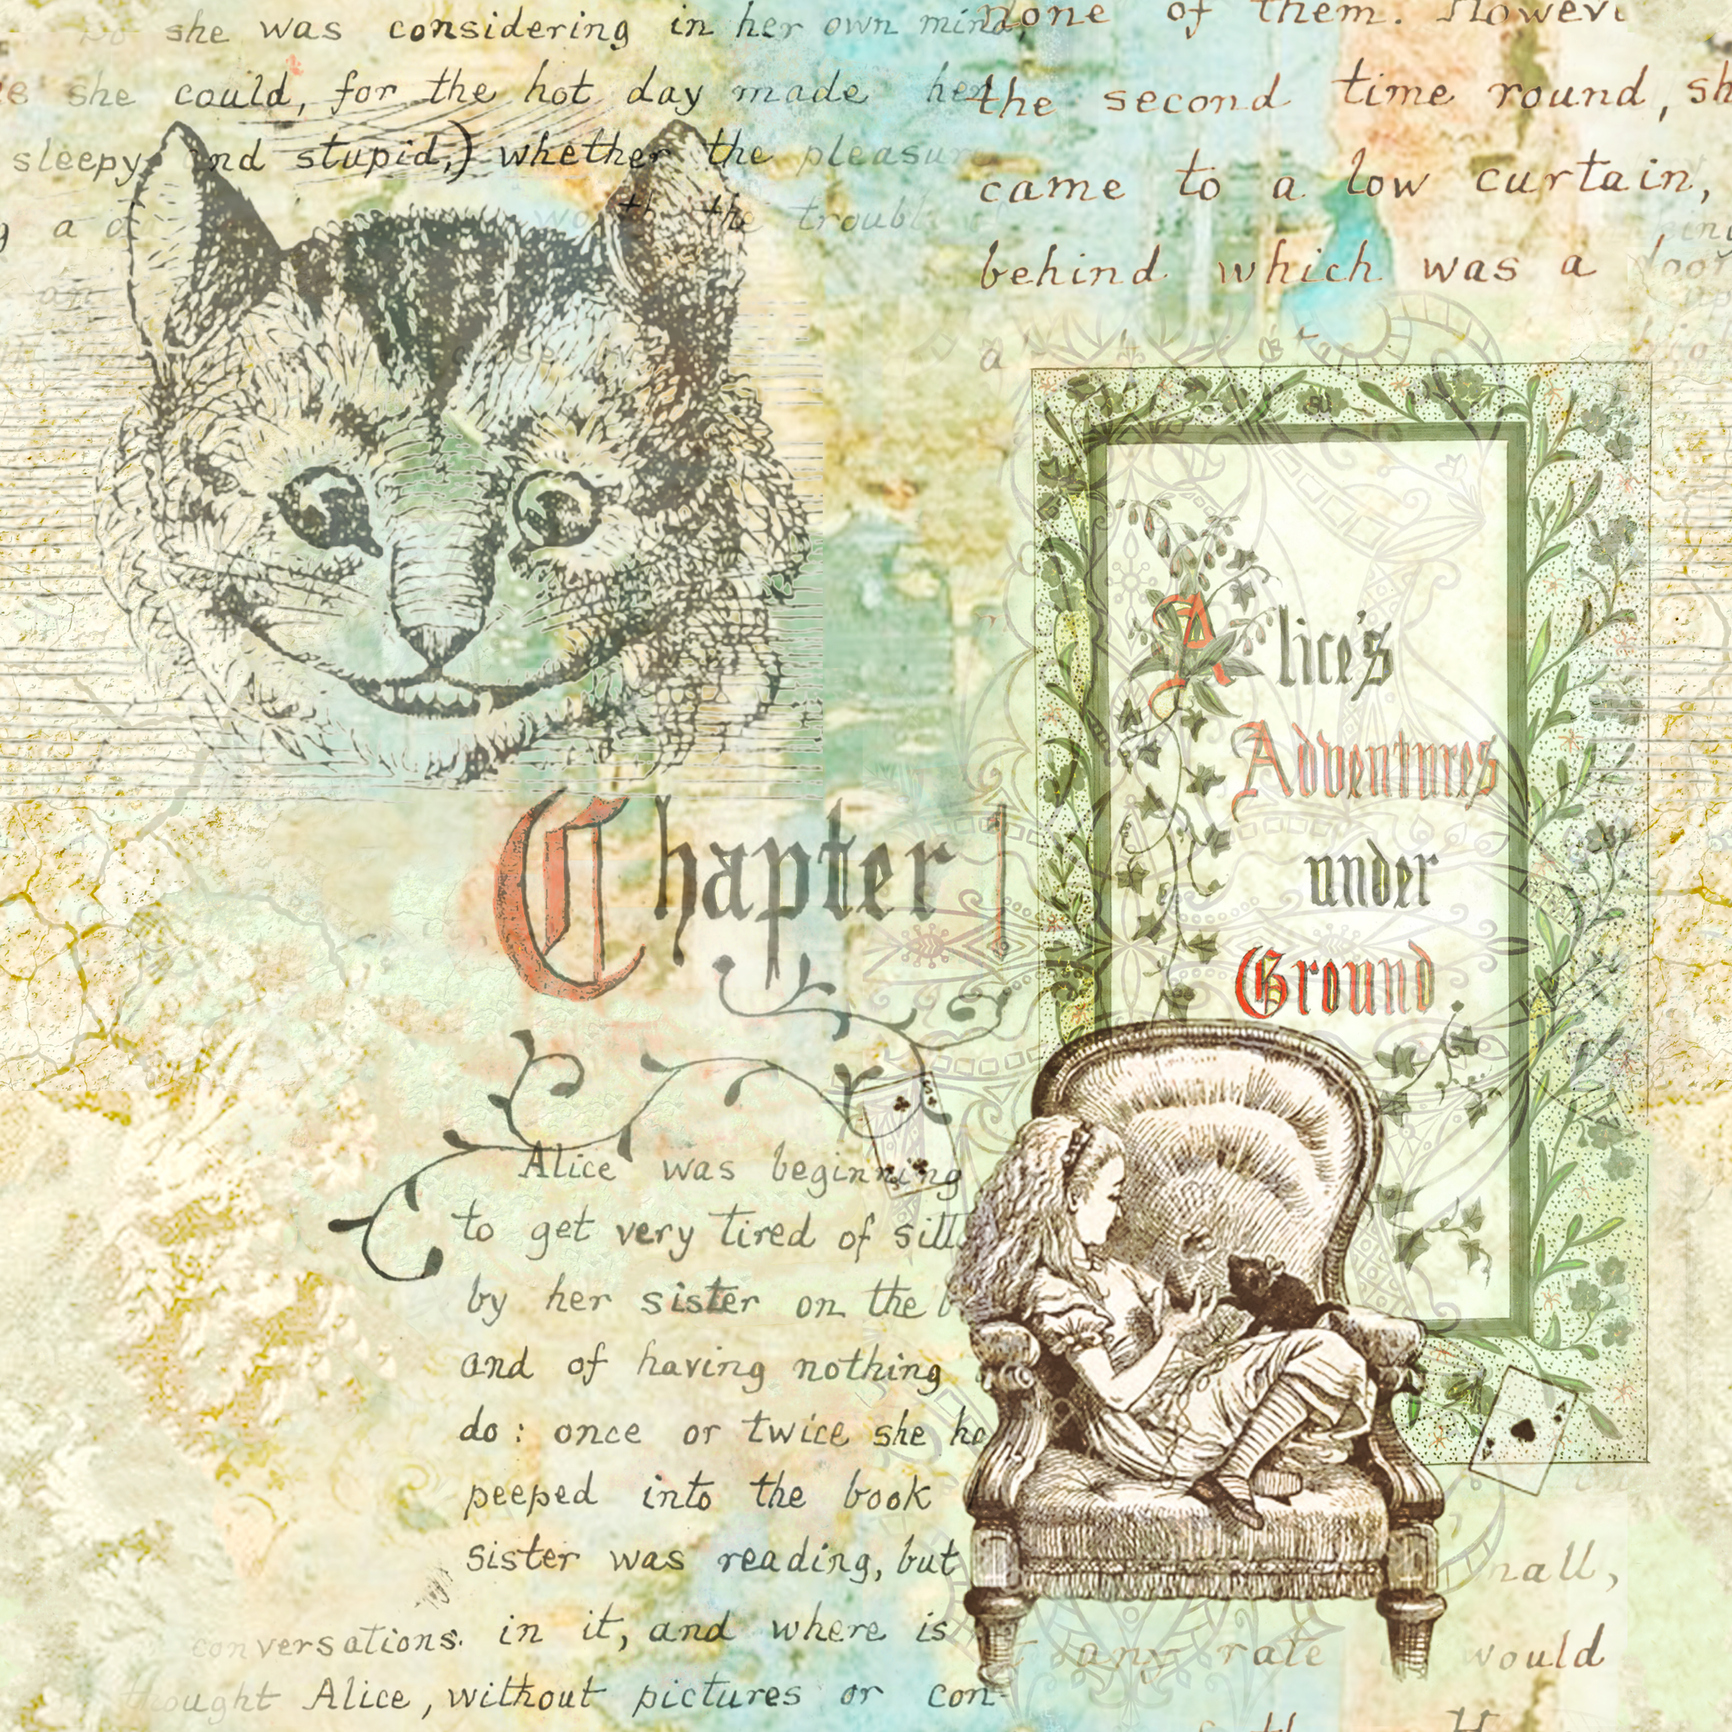 she was considering in her own mind,
she could, for the hot day made her
sleepy and stupid,) whether the pleasure
worth the trouble
none of them. However
the second time round, sh
came to a low curtain,
behind which was a door
Alice's
Adventures
under
Ground
Chapter 1
Alice was beginning
to get very tired of sitt
by her sister on the b
and of having nothing
do: once or twice she ha
peeped into the book
sister was reading, but
conversations. in it, and where is
thought Alice, without pictures or con-
hall,
any rate would